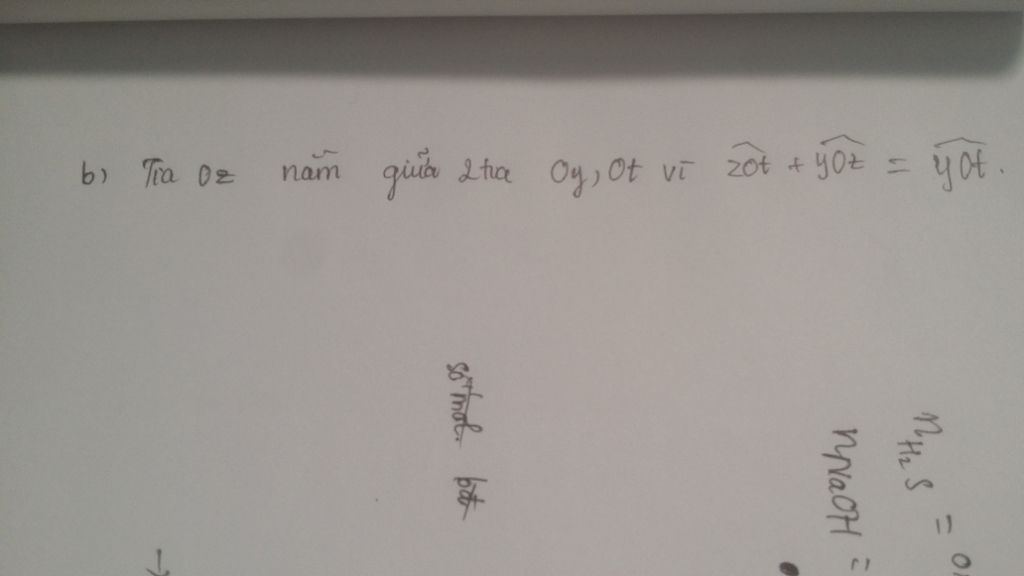 b) Tia Oz nằm giữa 2 tia Oy, Ot vì zOt + yOz = yOt.
số mol bđ
nH₂S = 0
nNaOH =